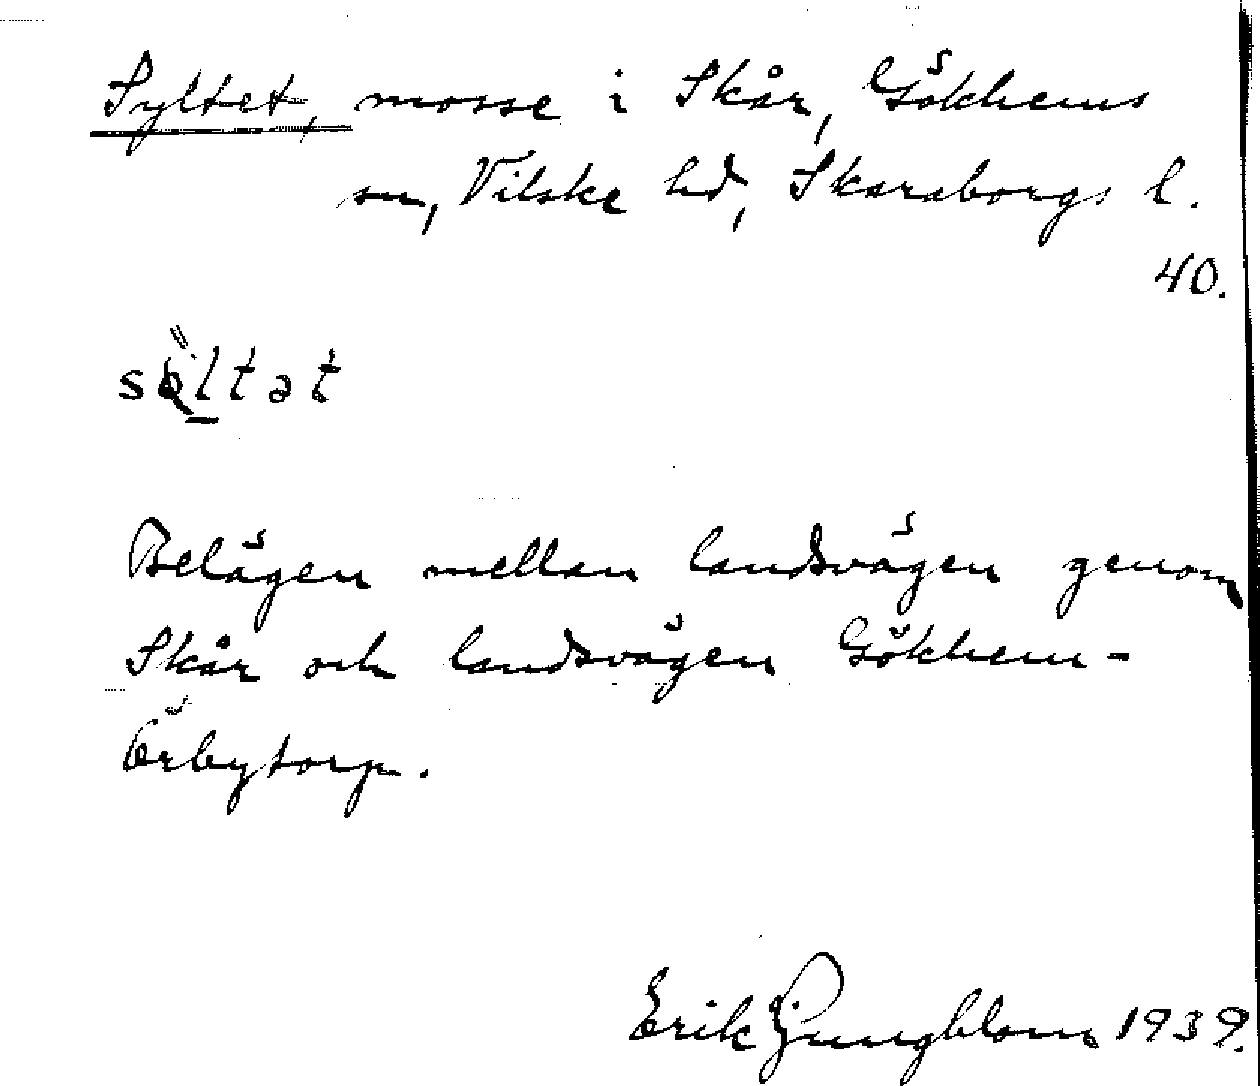 Syltet, mosse i Skår, Gökhems
sn, Vilske hd, Skaraborgs l.
40.
sö̀ltət
Belägen mellan landsvägen genom
Skår och landsvägen Gökhem-
Örbytorp.
Erik Ljungblom 1939.